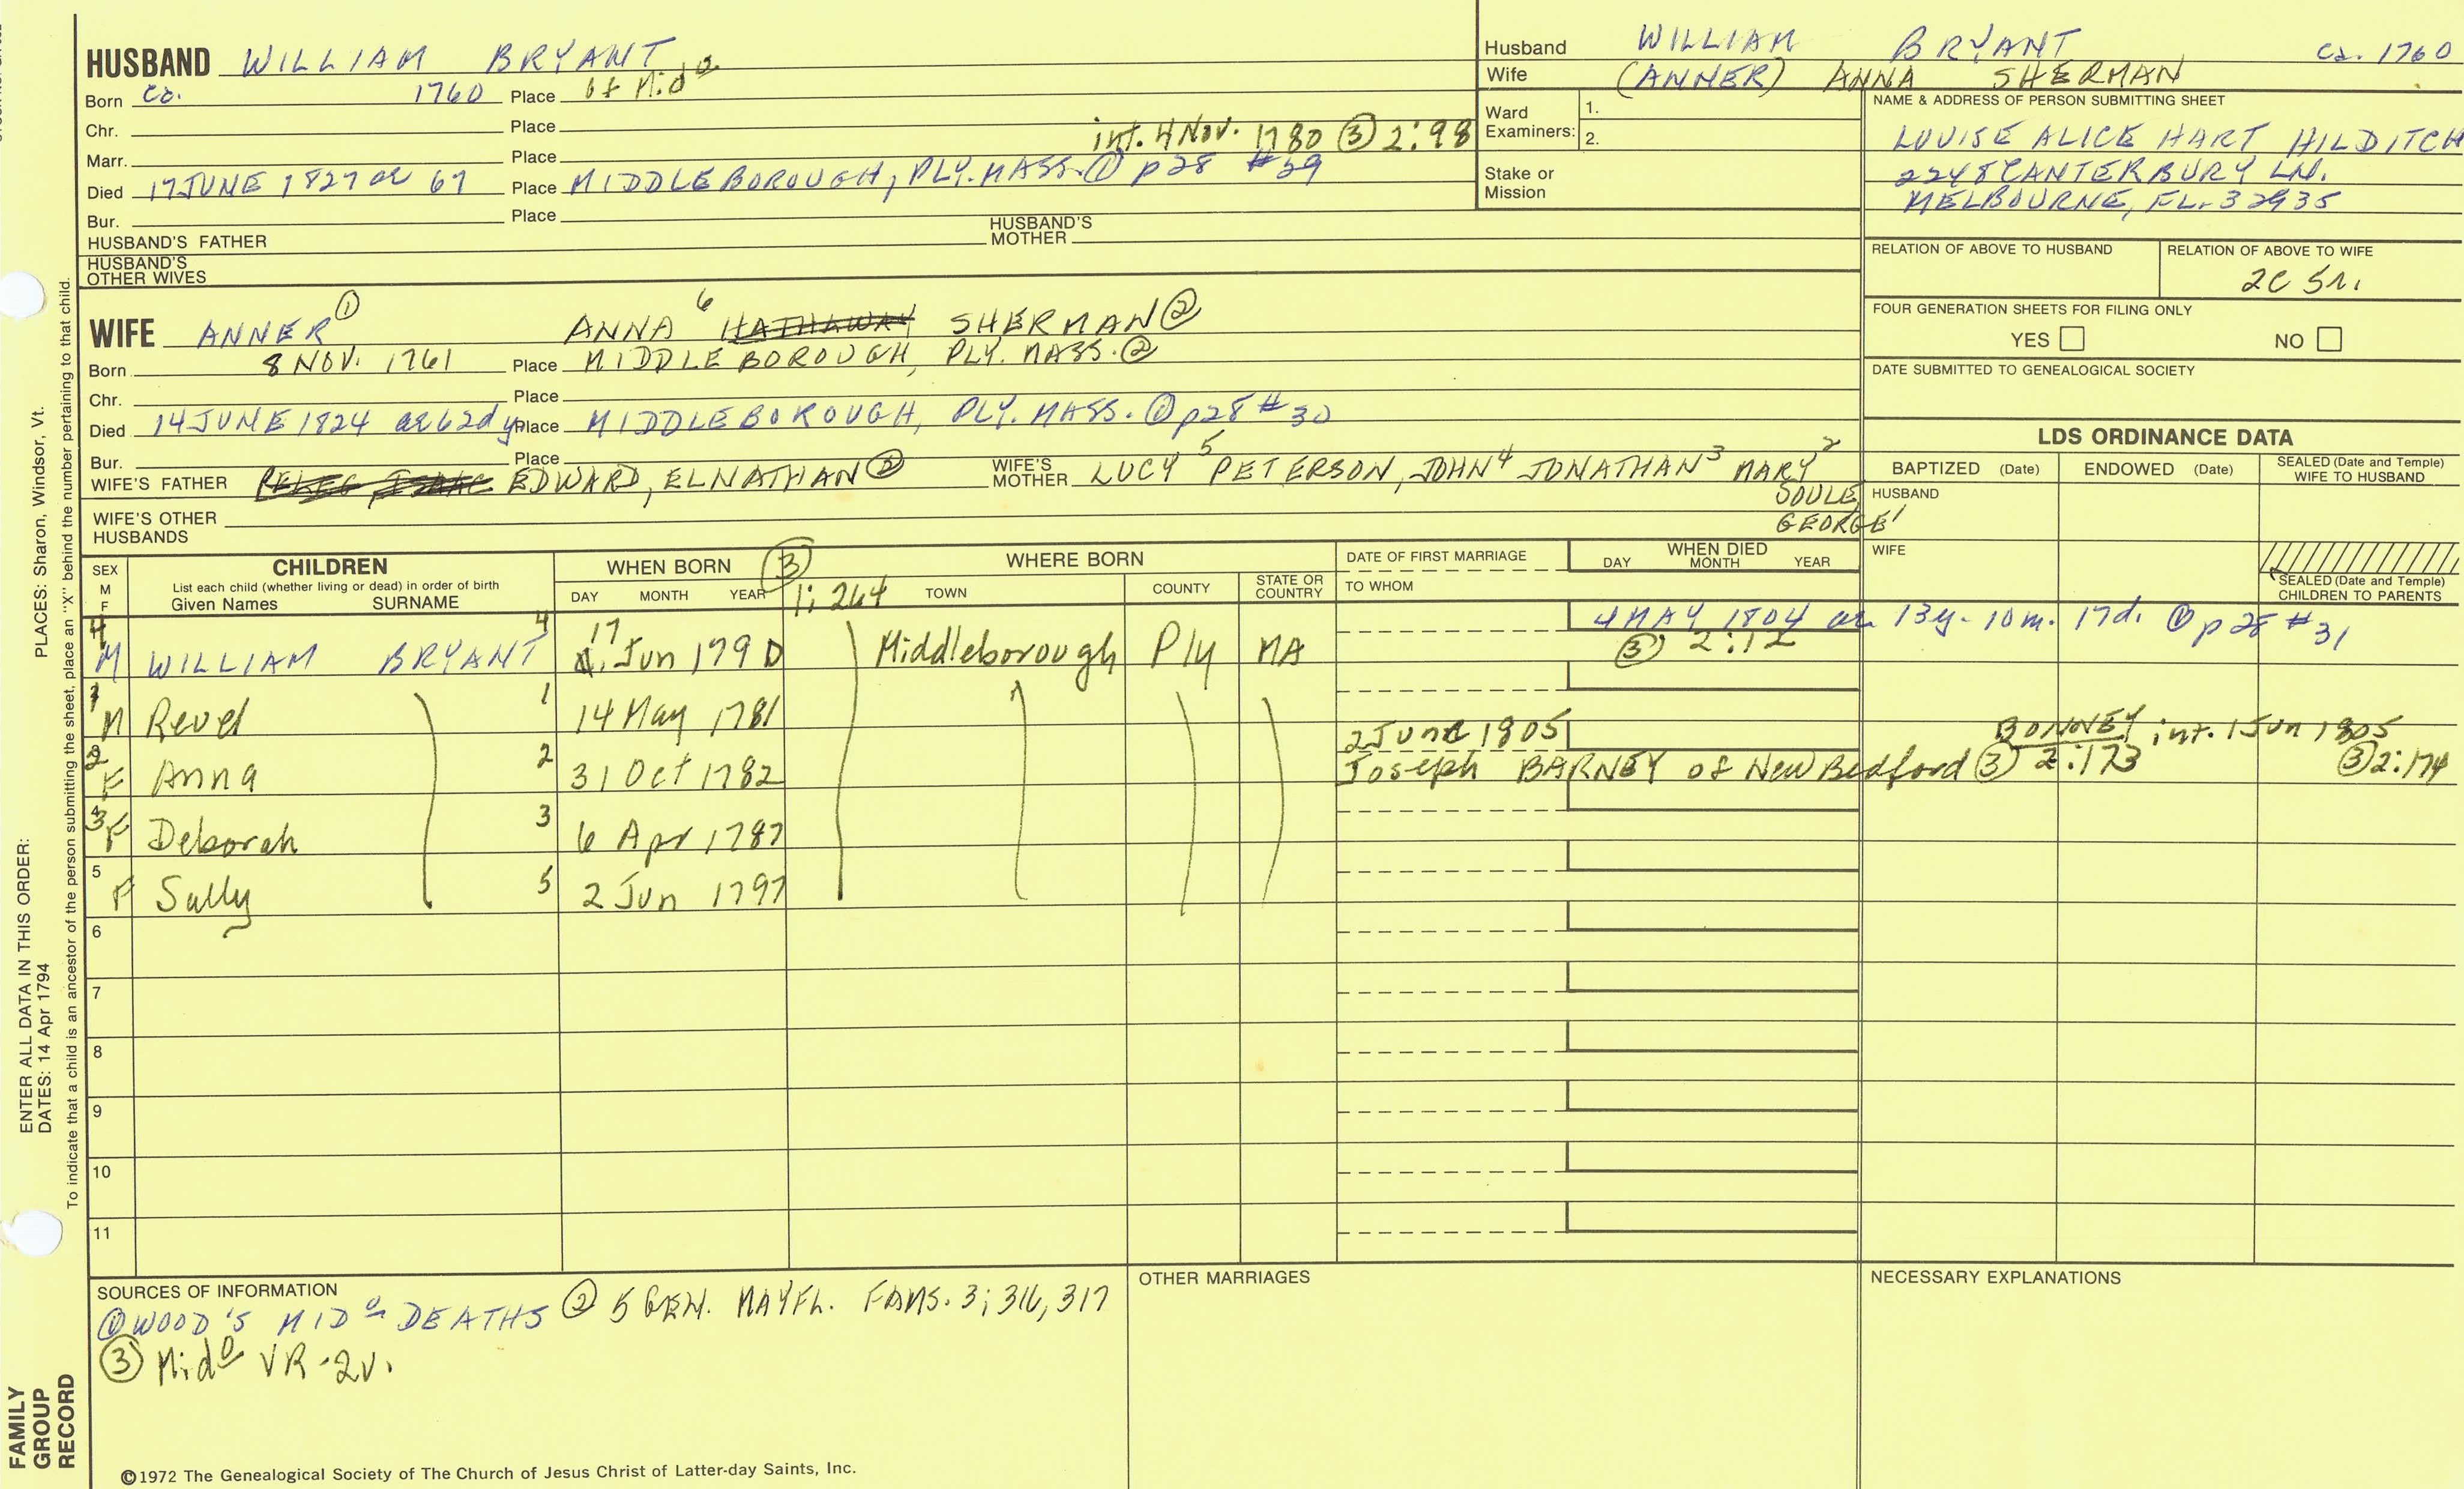 HUSBAND WILLIAM BRYANT
Born ca. 1760 Place of Mido
Chr. Place
int. 4 Nov. 1780 ③ 2:98
Marr. Place
Died 17 JUNE 1827 ae 67 Place MIDDLEBOROUGH, PLY. MASS. ① p 28 #29
Bur. Place
HUSBAND'S FATHER HUSBAND'S MOTHER
HUSBAND'S OTHER WIVES
Husband WILLIAM BRYANT ca. 1760
Wife (ANNER) ANNA SHERMAN
Ward Examiners: 1.
2.
Stake or Mission
NAME & ADDRESS OF PERSON SUBMITTING SHEET
LOUISE ALICE HART HILDITCH
2248 CANTERBURY LN.
MELBOURNE, FL. 32935
RELATION OF ABOVE TO HUSBAND RELATION OF ABOVE TO WIFE
2C 5r.
FOUR GENERATION SHEETS FOR FILING ONLY
YES NO
DATE SUBMITTED TO GENEALOGICAL SOCIETY
WIFE ANNER ① ANNA 6 HATHAWAY SHERMAN ②
Born 8 NOV. 1761 Place MIDDLEBOROUGH, PLY. MASS. ②
Chr. Place
Died 14 JUNE 1824 ae 62d y Place MIDDLEBOROUGH, PLY. MASS. ① p28 #30
Bur. Place
WIFE'S FATHER PELEG ISAAC EDWARD, ELNATHAN ② WIFE'S MOTHER LUCY 5 PETERSON, JOHN 4 JONATHAN 3 MARY 2
SOULE,
GEORGE 1
WIFE'S OTHER HUSBANDS
LDS ORDINANCE DATA
BAPTIZED (Date) ENDOWED (Date) SEALED (Date and Temple) WIFE TO HUSBAND
HUSBAND
WIFE
SEALED (Date and Temple) CHILDREN TO PARENTS
SEX M F
CHILDREN
List each child (whether living or dead) in order of birth
Given Names SURNAME
WHEN BORN ③ 1:264
DAY MONTH YEAR
WHERE BORN
TOWN COUNTY STATE OR COUNTRY
DATE OF FIRST MARRIAGE
TO WHOM
WHEN DIED
DAY MONTH YEAR
4 M WILLIAM BRYANT 4 17 Jun 1790 Middleborough Ply MA 4 MAY 1804 ae 13y-10m. 17d. ① p 28 #31
③ 2:12
1 M Revel 1 14 May 1781
2 F Anna 2 31 Oct 1782 2 June 1805 BONNEY int. 1 Jun 1805
Joseph BARNEY of New Bedford ③ 2:173 ③ 2:174
3 F Deborah 3 6 Apr 1787
5 F Sally 5 2 Jun 1797
6
7
8
9
10
11
SOURCES OF INFORMATION
① WOOD'S MIDo DEATHS ② 5 GEN. MAYFL. FAMS. 3; 316, 317
③ Mido VR-2v.
OTHER MARRIAGES
NECESSARY EXPLANATIONS
©1972 The Genealogical Society of The Church of Jesus Christ of Latter-day Saints, Inc.
FAMILY GROUP RECORD
ENTER ALL DATA IN THIS ORDER:
DATES: 14 Apr 1794
PLACES: Sharon, Windsor, Vt.
To indicate that a child is an ancestor of the person submitting the sheet, place an "X" behind the number pertaining to that child.